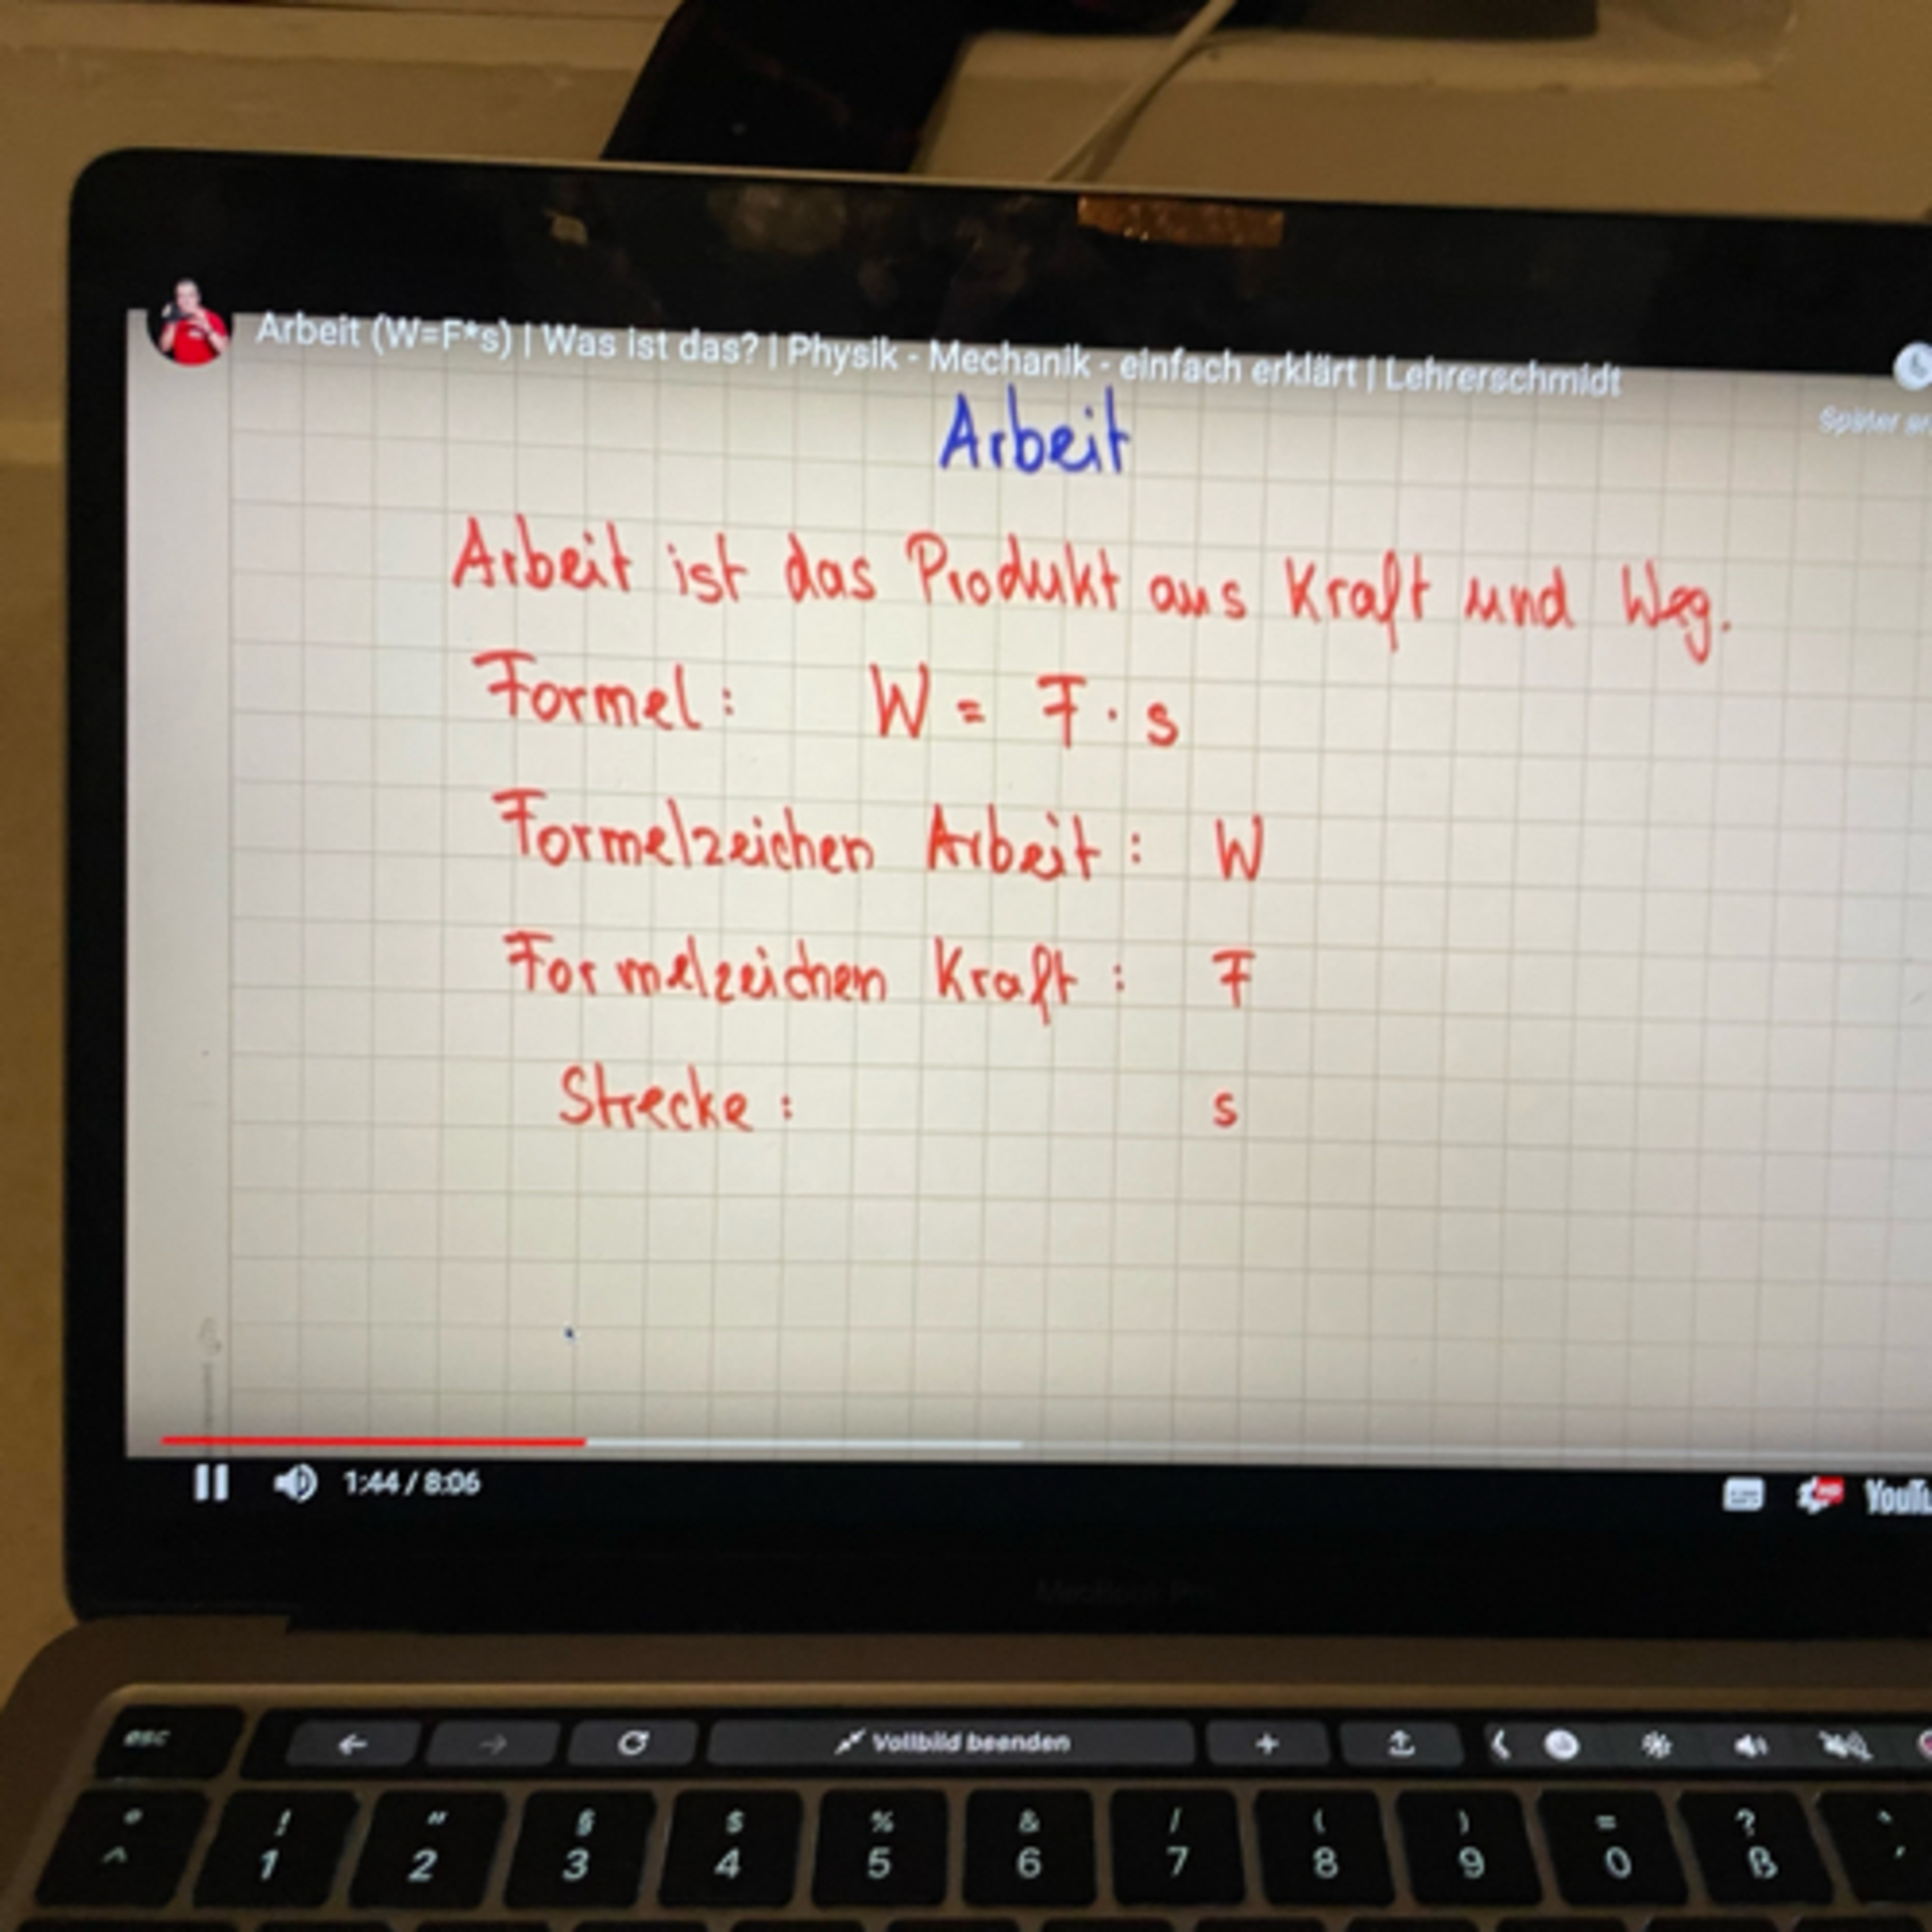 Arbeit (W=F*s) | Was ist das? | Physik - Mechanik - einfach erklärt | Lehrerschmidt
Später
Arbeit
Arbeit ist das Produkt aus Kraft und Weg.
Formel: W = F · s
Formelzeichen Arbeit: W
Formelzeichen Kraft: F
Strecke: s
1:44 / 8:06
HD
YouTu
MacBook Pro
esc
Vollbild beenden
° ! " § $ % & / ( ) = ? `
^ 1 2 3 4 5 6 7 8 9 0 ß ´